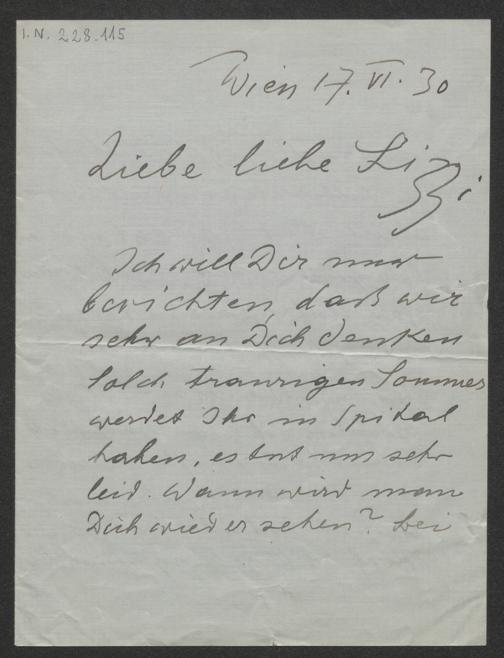 I.N. 228.115
Wien 17. VI. 30
Liebe liebe Lizzi
Ich will Dir nur
berichten, daß wir
sehr an Dich denken
Solch traurigen Sommer
werdet Ihr in Spital
haben, es tut uns sehr
leid. Wann wird man
Dich wieder sehen? bei